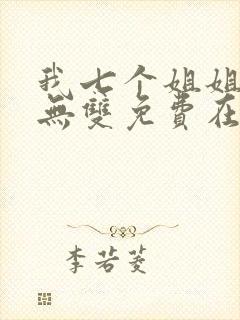 我七个姐姐
無雙免費在
李若菱